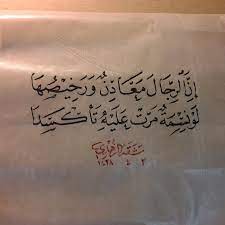 إِنَّ الرِّجَالَ مَعَادِنٌ وَرَخِيْصُهَا
لَوْ نِسْمَةٌ مَرَّتْ عَلَيْهِ تَأَكْسَدَا